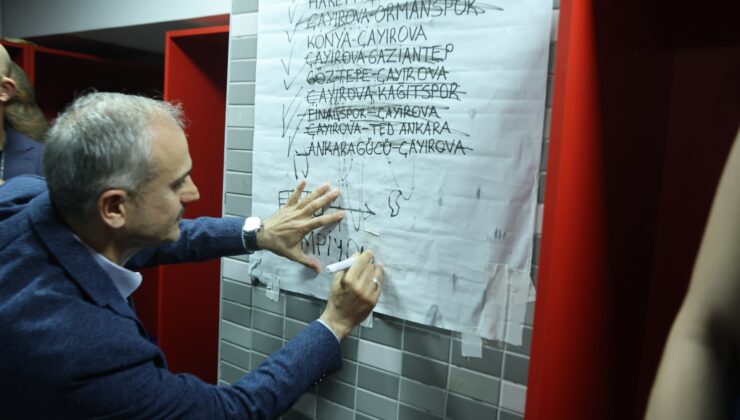 ÇAYIROVA-ORMANSPOR
KONYA-ÇAYIROVA
ÇAYIROVA-GAZİANTEP
GÖZTEPE-ÇAYIROVA
ÇAYIROVA-KAĞITSPOR
FİNALSPOR-ÇAYIROVA
ÇAYIROVA-TED ANKARA
ANKARAGÜCÜ-ÇAYIROVA